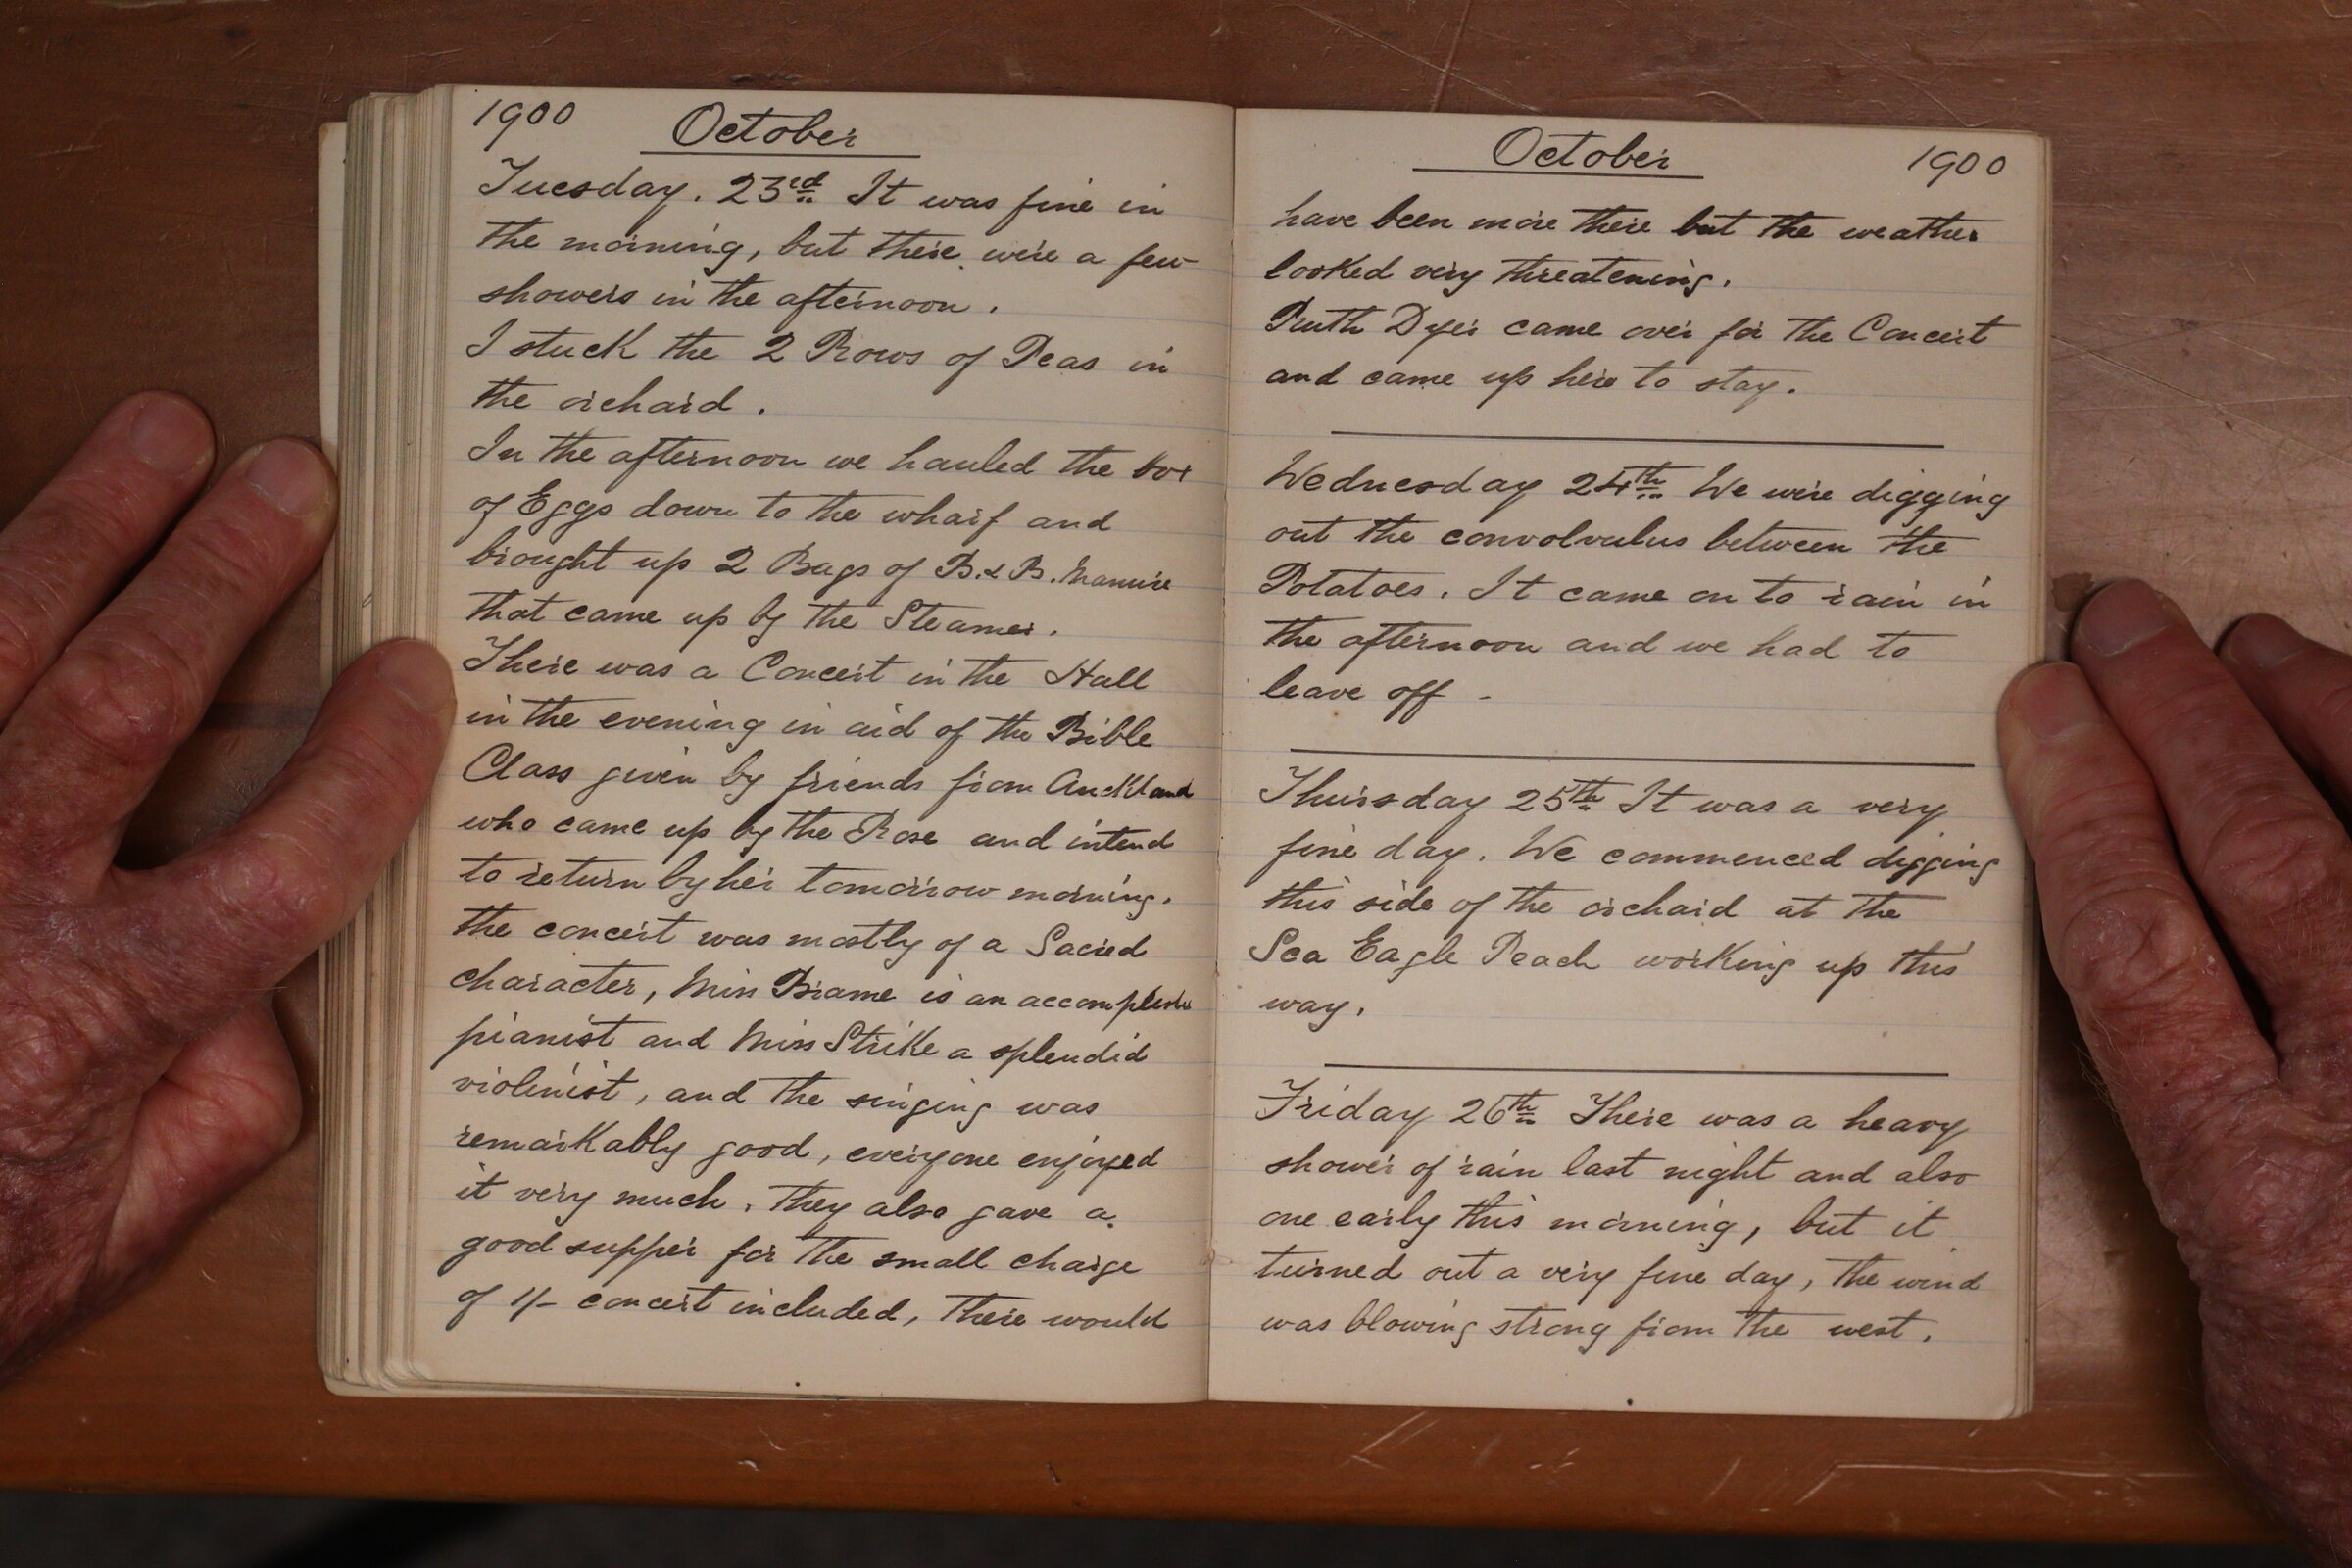 1900 October
Tuesday. 23rd It was fine in
the morning, but there were a few
showers in the afternoon.
I stuck the 2 Rows of Peas in
the orchard.
In the afternoon we hauled the box
of Eggs down to the wharf and
brought up 2 Bags of B. & B. Manure
that came up by the Steamer.
There was a Concert in the Hall
in the evening in aid of the Bible
Class given by friends from Auckland
who came up by the Rose and intend
to return by her tomorrow morning.
the concert was mostly of a Sacred
character, Miss Brame is an
pianist and Miss Strike a splendid
violinist, and the singing was
remarkably good, everyone enjoyed
it very much. They also gave a
good supper for the small charge
of 1/- concert included, There would
October 1900
have been more there but the weather
looked very threatening.
Ruth Dyer came over for the Concert
and came up here to stay.
Wednesday 24th We were digging
out the convolvulus between the
Potatoes. It came on to rain in
the afternoon and we had to
leave off -
Thursday 25th It was a very
fine day. We commenced digging
this side of the orchard at the
Sea Eagle Peach working up this
way.
Friday 26th There was a heavy
shower of rain last night and also
one early this morning, but it
turned out a very fine day, the wind
was blowing strong from the west.